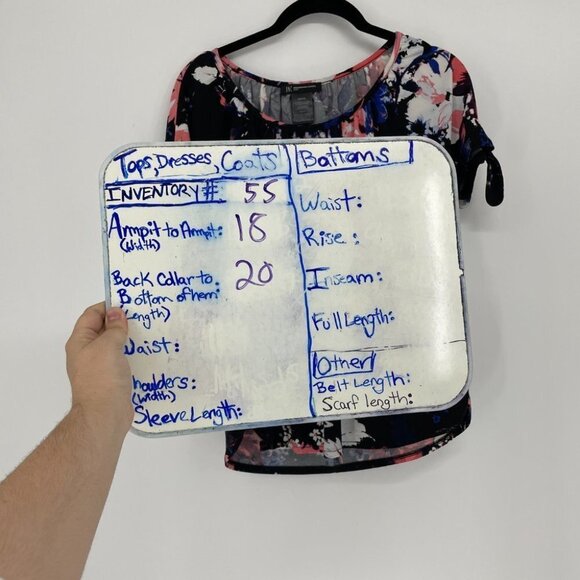 Tops, Dresses, Coats
INVENTORY #: 55
Armpit to Armpit: 18
(Width)
Back Collar to 20
Bottom of hem:
(Length)
Waist:
houlders:
(width)
Sleeve Length:
Bottoms
Waist:
Rise:
Inseam:
Full Length:
Other
Belt Length:
Scarf length: